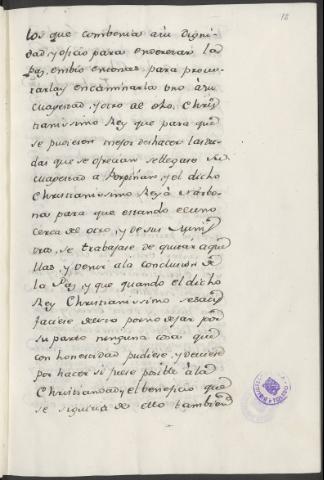 18
los que combenia a su digni-
dad, y oficio para enderezar la
Paz, embió entonces para procu-
rarla, y encaminarla uno à su
cuagestad, y otro al dho. Chris-
tianissimo Rey que para que
se pudiesen mejor deshacer las du-
das que se ofrecian se llegase su
cuagestad a Perpiñan, y el dicho
Christianissimo Rey à Narbo-
na para que estando el uno
cerca del otro, y de sus Minis-
tros, se trabajase de quitar aque-
llas, y venir a la conclusion de
la Paz, y que quando el dicho
Rey Christianissimo se satis-
faciese de esto por no dejar por
su parte ninguna cosa que
con honestidad pudiese, y deviese
por hacer si fuese posible à la
Christiandad, y el beneficio que
se siguiese de ello tambien